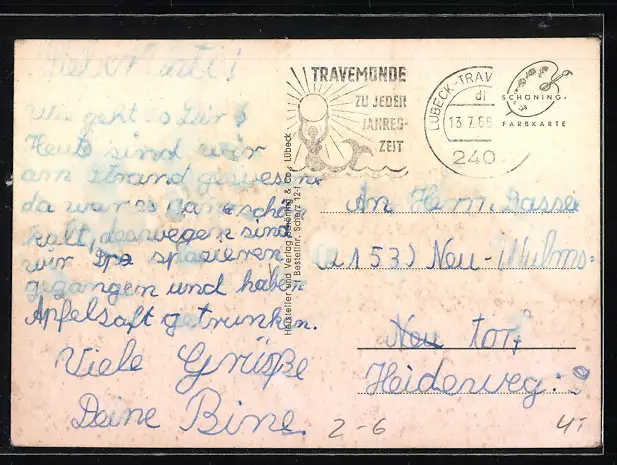 Wie geht es Dir?
Heute sind wir
am Strand gewesen.
da war es ganz schön
kalt, deswegen sind
wir spazieren
gegangen und haben
Apfelsaft getrunken.
Viele Grüße
Deine Bine.
TRAVEMÜNDE
ZU JEDER
JAHRES-
ZEIT
LÜBECK-TRAV
13.7.66
240
SCHÖNING
FARBKARTE
Hersteller und Verlag Schöning & Co., Lübeck
Bestellnr. Scherz 12-1
An Herrn Dassei
(2153) Neu-Wulms=
Neu torf
Heideweg: 9
2-6
4,-